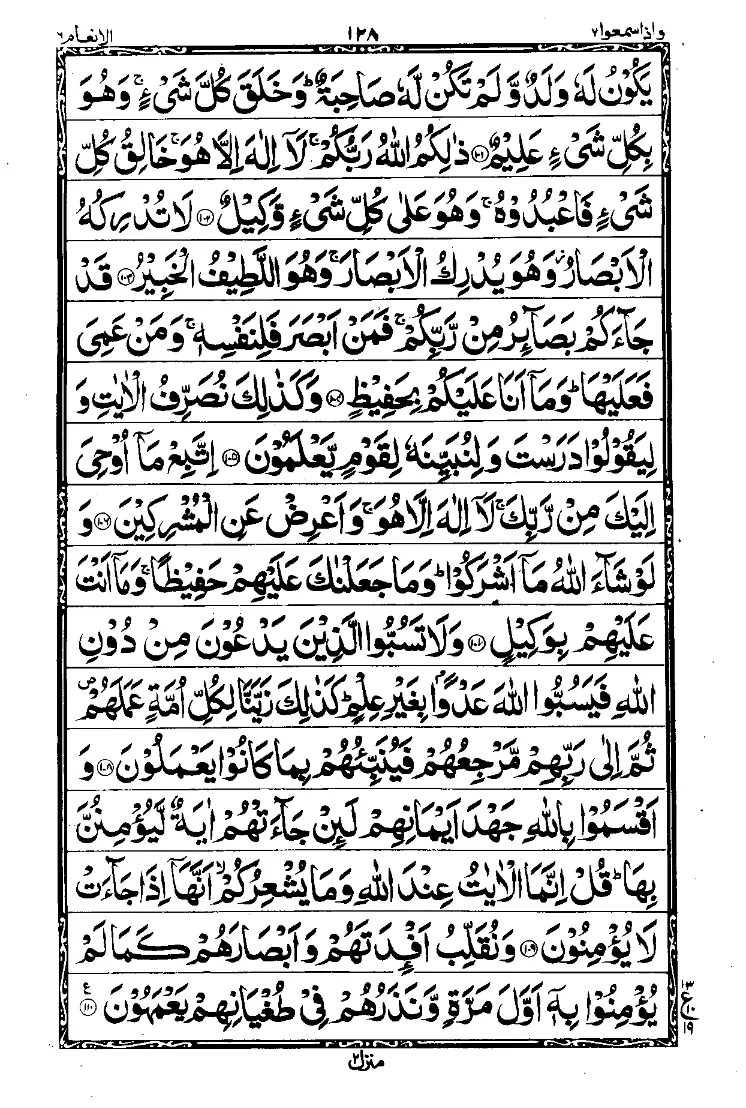 الانعام ٦ ١٢٨ واذاسمعوا ٧
يَكُوْنُ لَهٗ وَلَدٌ وَّلَمْ تَكُنْ لَّهٗ صَاحِبَةٌ ؕ وَخَلَقَ كُلَّ شَىْءٍ ۚ وَهُوَ
بِكُلِّ شَىْءٍ عَلِيْمٌ ۝١٠١ ذٰلِكُمُ اللّٰهُ رَبُّكُمْ ۚ لَاۤ اِلٰهَ اِلَّا هُوَ ۚ خَالِقُ كُلِّ
شَىْءٍ فَاعْبُدُوْهُ ۚ وَهُوَ عَلٰى كُلِّ شَىْءٍ وَّكِيْلٌ ۝١٠٢ لَا تُدْرِكُهُ
الْاَبْصَارُ ؗ وَهُوَ يُدْرِكُ الْاَبْصَارَ ۚ وَهُوَ اللَّطِيْفُ الْخَبِيْرُ ۝١٠٣ قَدْ
جَآءَكُمْ بَصَآئِرُ مِنْ رَّبِّكُمْ ۚ فَمَنْ اَبْصَرَ فَلِنَفْسِهٖ ۚ وَمَنْ عَمِىَ
فَعَلَيْهَا ؕ وَمَاۤ اَنَا عَلَيْكُمْ بِحَفِيْظٍ ۝١٠٤ وَكَذٰلِكَ نُصَرِّفُ الْاٰيٰتِ وَ
لِيَقُوْلُوْا دَرَسْتَ وَلِنُبَيِّنَهٗ لِقَوْمٍ يَّعْلَمُوْنَ ۝١٠٥ اِتَّبِعْ مَاۤ اُوْحِىَ
اِلَيْكَ مِنْ رَّبِّكَ ۚ لَاۤ اِلٰهَ اِلَّا هُوَ ۚ وَاَعْرِضْ عَنِ الْمُشْرِكِيْنَ ۝١٠٦ وَ
لَوْ شَآءَ اللّٰهُ مَاۤ اَشْرَكُوْا ؕ وَمَا جَعَلْنٰكَ عَلَيْهِمْ حَفِيْظًا ۚ وَمَاۤ اَنْتَ
عَلَيْهِمْ بِوَكِيْلٍ ۝١٠٧ وَلَا تَسُبُّوا الَّذِيْنَ يَدْعُوْنَ مِنْ دُوْنِ
اللّٰهِ فَيَسُبُّوا اللّٰهَ عَدْوًۢا بِغَيْرِ عِلْمٍ ؕ كَذٰلِكَ زَيَّنَّا لِكُلِّ اُمَّةٍ عَمَلَهُمْ ۪
ثُمَّ اِلٰى رَبِّهِمْ مَّرْجِعُهُمْ فَيُنَبِّئُهُمْ بِمَا كَانُوْا يَعْمَلُوْنَ ۝١٠٨ وَ
اَقْسَمُوْا بِاللّٰهِ جَهْدَ اَيْمَانِهِمْ لَئِنْ جَآءَتْهُمْ اٰيَةٌ لَّيُؤْمِنُنَّ
بِهَا ؕ قُلْ اِنَّمَا الْاٰيٰتُ عِنْدَ اللّٰهِ وَمَا يُشْعِرُكُمْ ۙ اَنَّهَاۤ اِذَا جَآءَتْ
لَا يُؤْمِنُوْنَ ۝١٠٩ وَنُقَلِّبُ اَفْـِٕدَتَهُمْ وَاَبْصَارَهُمْ كَمَا لَمْ
يُؤْمِنُوْا بِهٖۤ اَوَّلَ مَرَّةٍ وَّنَذَرُهُمْ فِىْ طُغْيَانِهِمْ يَعْمَهُوْنَ ۝١١٠ ع
٣ ع ١٠ ١٩
منزل ٢